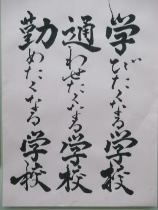 学びたくなる学校
通わせたくなる学校
勤めたくなる学校